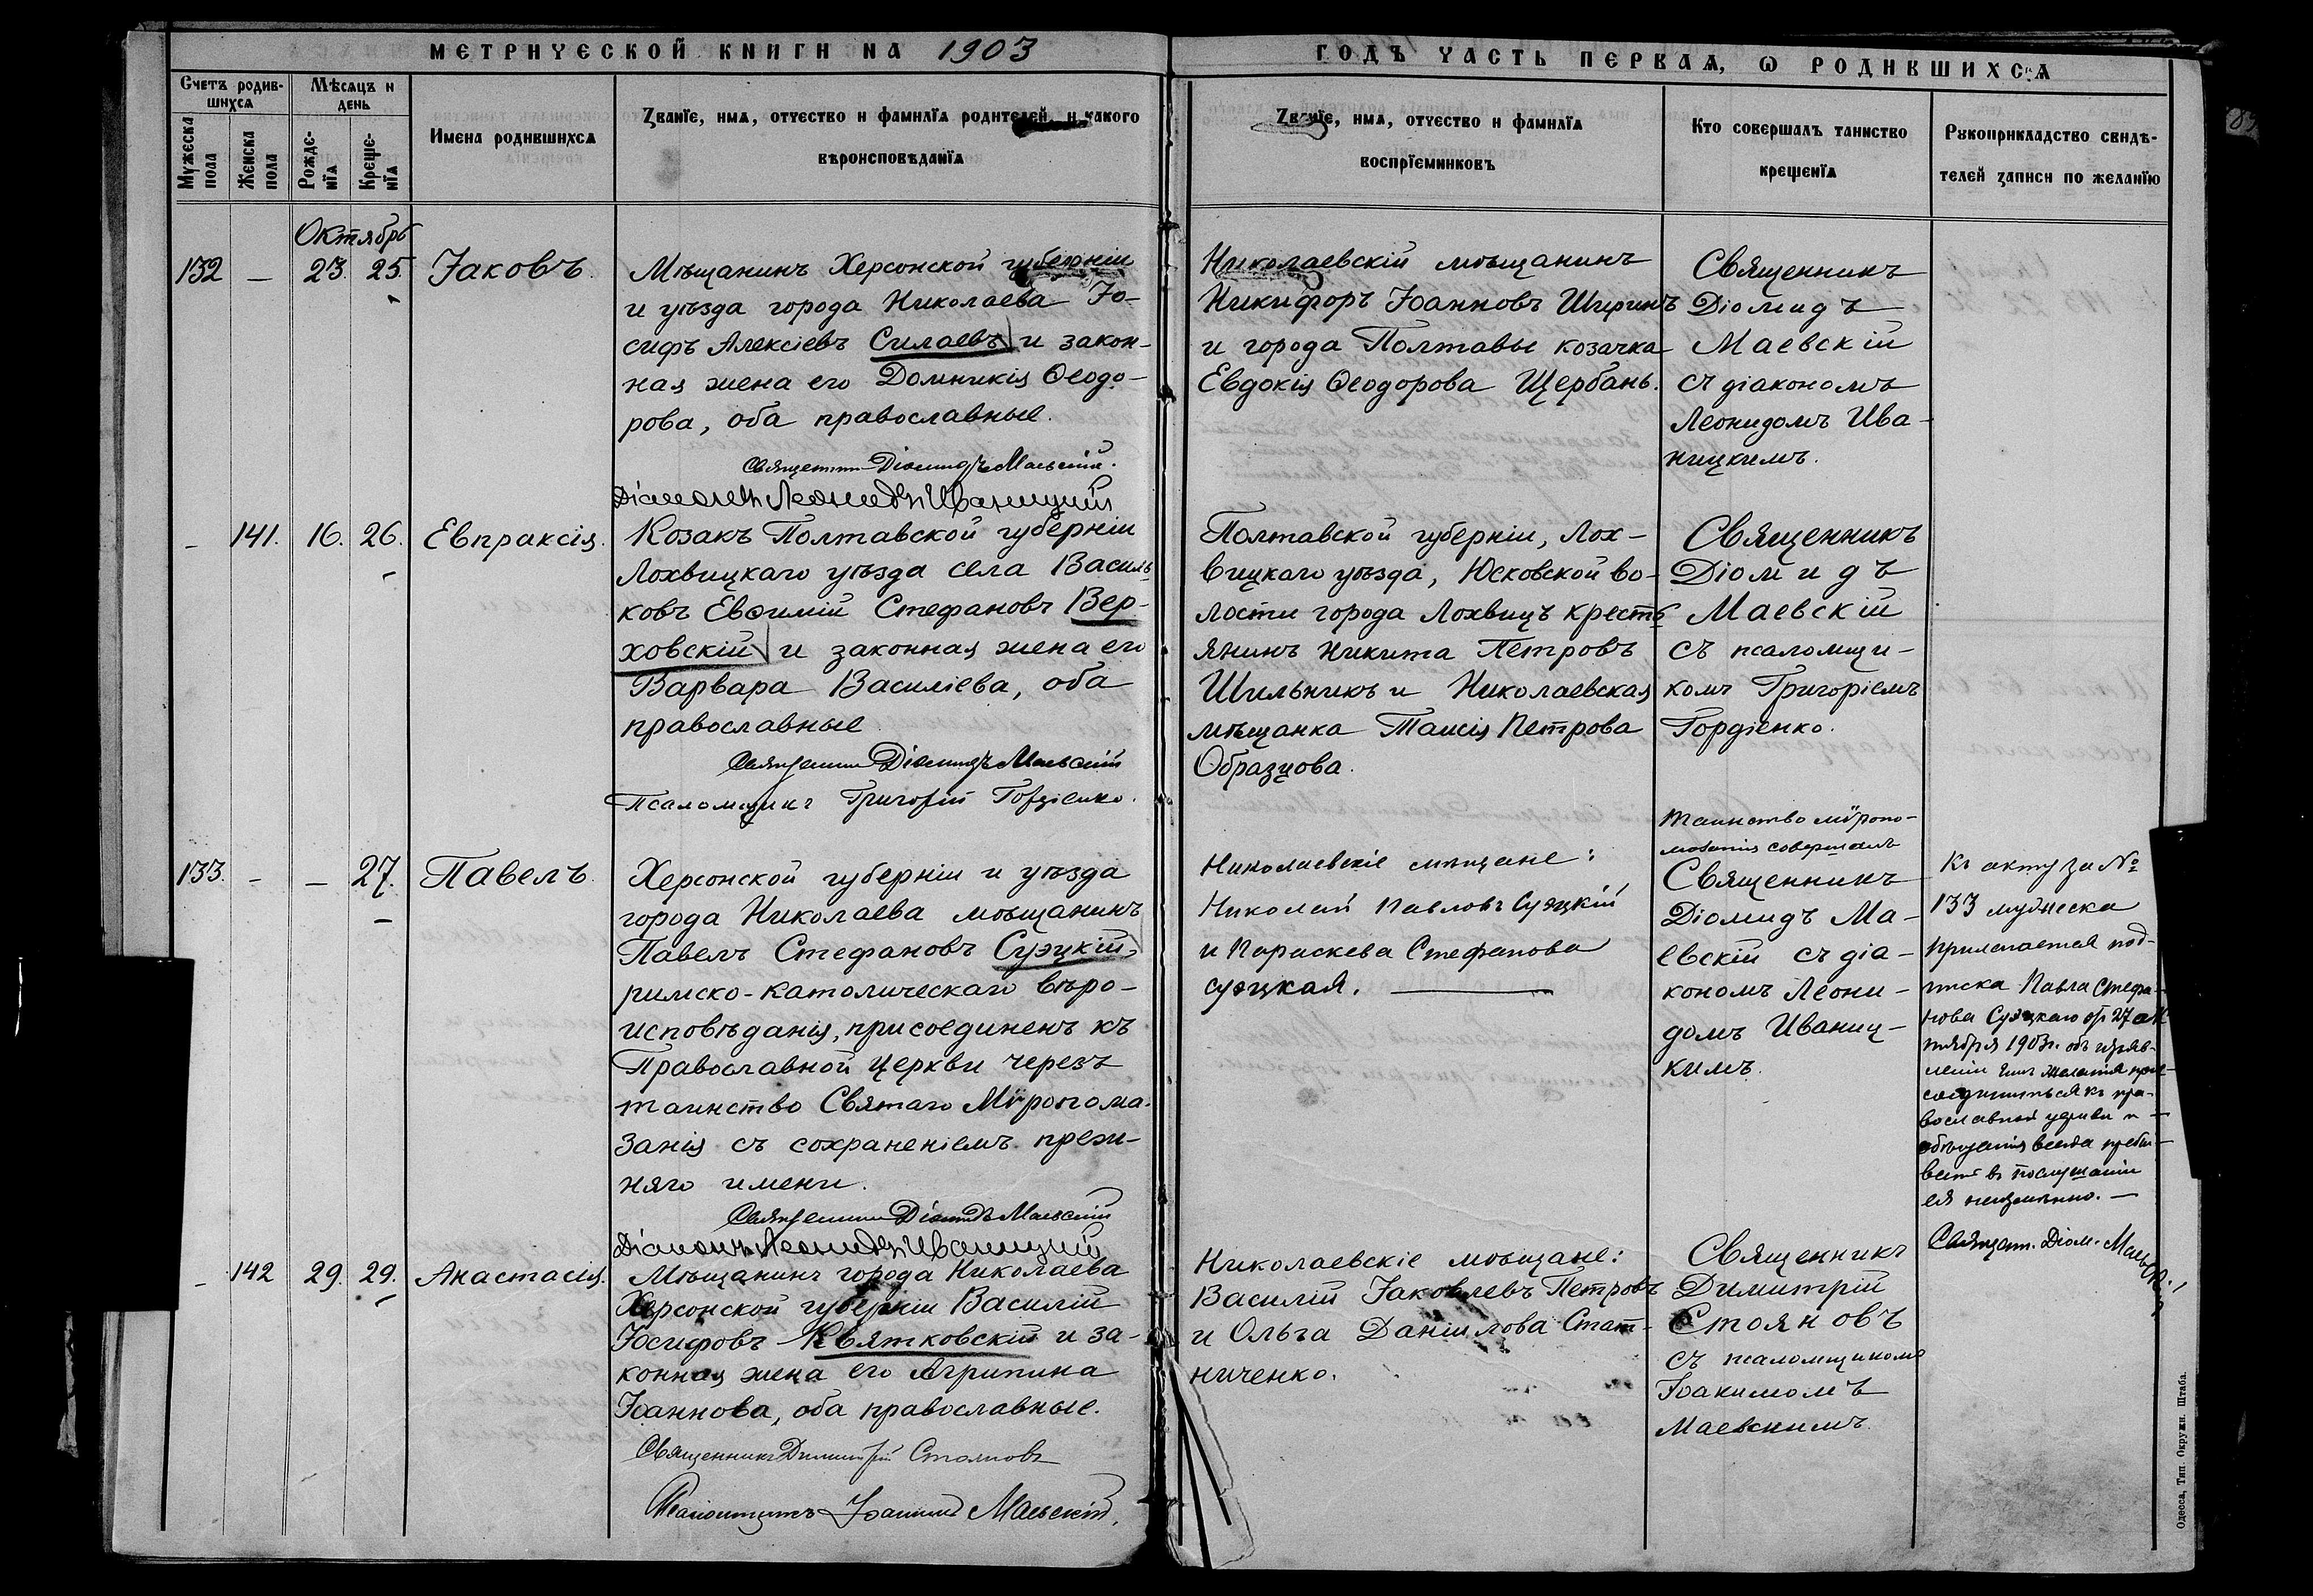 МЕТРИЧЕСКОЙ КНИГИ НА 1903
ГОДЪ ЧАСТЬ ПЕРВАЯ, Ѡ РОДИВШИХСЯ
Счетъ родив-
шихся
Мѣсяцъ и
день
Мужеска
пола
Женска
пола
Рожде-
нїя
Креще-
нїя
Имена родившихся
Званїе, имя, отчество и фамилїя родителей, и какого
вѣроисповѣданїя
Званїе, имя, отчество и фамилїя
воспрїемниковъ
Кто совершалъ таинство
крещенїя
Рукоприкладство свидѣ-
телей записи по желанїю
Октябрь
132 — 23. 25. Іаковъ.
Мѣщанинъ Херсонской губерніи
и уѣзда города Николаева Іо-
сифъ Алексіевъ Силаевъ и закон-
ная жена его Домникія Ѳеодо-
рова, оба православные.
Священникъ Діомидъ Маевскій.
Діаконъ Леонидъ Иваницкій
Николаевскій мѣщанинъ
Никифоръ Іоанновъ Ширинъ
и города Полтавы козачка
Евдокія Ѳеодорова Щербань.
Священникъ
Діомидъ
Маевскій
съ діакономъ
Леонидомъ Ива-
ницкимъ.
— 141. 16. 26. Евпраксія.
Козакъ Полтавской губерніи
Лохвицкаго уѣзда села Василь-
ковъ Евѳимій Стефановъ Вер-
ховскій и законная жена его
Варвара Василіева, оба
православные
Священникъ Діомидъ Маевскій
Псаломщикъ Григорій Гордіенко.
Полтавской губерніи, Лох-
вицкаго уѣзда, Юсковской во-
лости города Лохвицъ кресть
янинъ Никита Петровъ
Шильникъ и Николаевская
мѣщанка Таисія Петрова
Образцова.
Священникъ
Діомидъ
Маевскій
съ псаломщи-
комъ Григоріемъ
Гордіенко.
133. — — 27. Павелъ.
Херсонской губерніи и уѣзда
города Николаева мѣщанинъ
Павелъ Стефановъ Суэцкій,
римско-католическаго вѣро-
исповѣданія, присоединенъ къ
Православной Церкви черезъ
таинство Святаго Мѵропома-
занія съ сохраненіемъ преж-
няго имени.
Священникъ Діомидъ Маевскій
Діаконъ Леонидъ Иваницкій
Николаевскіе мѣщане:
Николай Павловъ Суэцкій
и Параскева Стефанова
Суэцкая.
Таинство мѵропо-
мазанія совершалъ
Священникъ
Діомидъ Ма-
евскій съ діа-
кономъ Леони-
домъ Иваниц-
кимъ.
Къ акту за №
133 мужеска
прилагается под-
писка Павла Стефа-
нова Суэцкаго отъ 27 ок
тября 1903 г. объ изъяв-
леніи имъ желанія при-
соединиться къ пра-
вославной церкви и
обѣщанія всегда пребы-
вать въ послушаніи
ея неизмѣнно. —
Священ. Діом. Маевскій
— 142 29. 29. Анастасія.
Мѣщанинъ города Николаева
Херсонской губерніи Василій
Іосифовъ Квятковскій и за-
конная жена его Агрипина
Іоаннова, оба православные.
Священникъ Димитрій Стояновъ
Псаломщикъ Іоакимъ Маевскій.
Николаевскіе мѣщане:
Василій Іаковлевъ Петровъ
и Ольга Даніилова Стат-
ниченко.
Священникъ
Димитрій
Стояновъ
съ псаломщикомъ
Іоакимомъ
Маевскимъ.
Одесса, Тип. Окружн. Штаба.